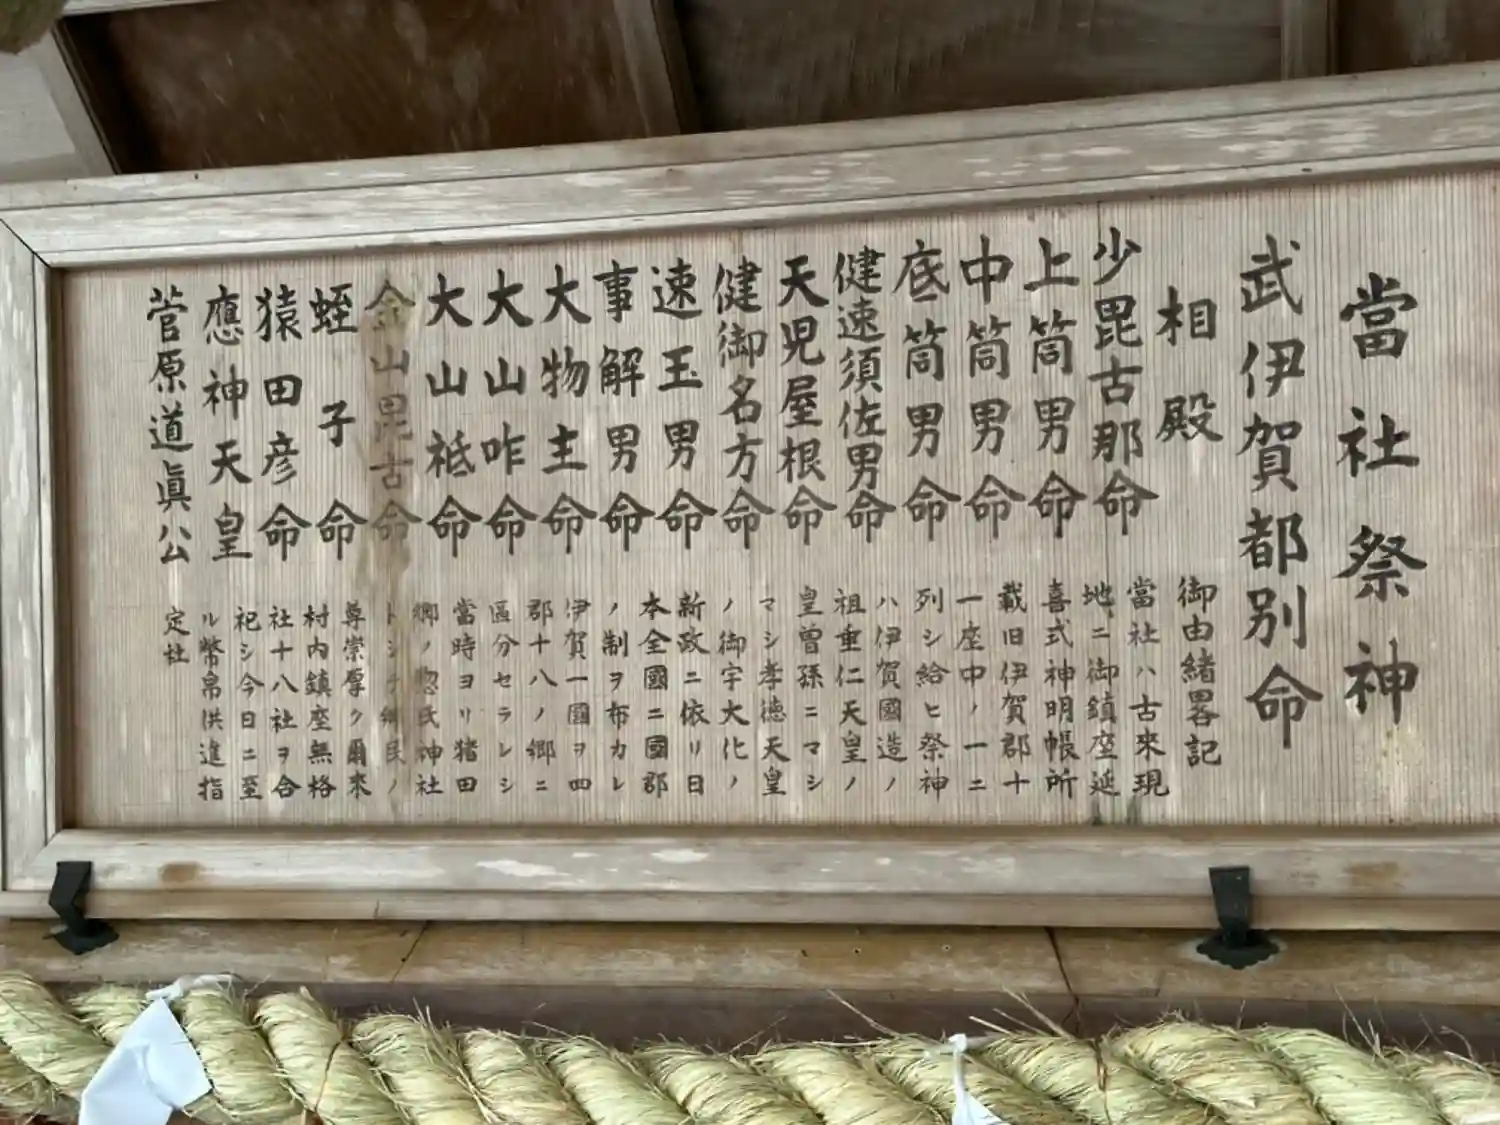 當社祭神
武伊賀都別命
相殿
少毘古那命
上筒男命
中筒男命
底筒男命
健速須佐男命
天児屋根命
健御名方命
速玉男命
事解男命
大物主命
大山咋命
大山祇命
金山毘古命
蛭子命
猿田彦命
應神天皇
菅原道眞公
御由緒畧記
當社ハ古來現
地ニ御鎮座延
喜式神明帳所
載旧伊賀郡十
一座中ノ一ニ
列シ給ヒ祭神
ハ伊賀國造ノ
祖垂仁天皇ノ
皇曽孫ニマシ
マシ孝徳天皇
ノ御宇大化ノ
新政ニ依リ日
本全國ニ國郡
ノ制ヲ布カレ
伊賀一國ヲ四
郡十八ノ郷ニ
區分セラレシ
當時ヨリ猪田
郷ノ惣氏神社
トシテ郷民ノ
尊崇厚ク爾來
村内鎮座無格
社十八社ヲ合
祀シ今日ニ至
ル幣帛供進指
定社